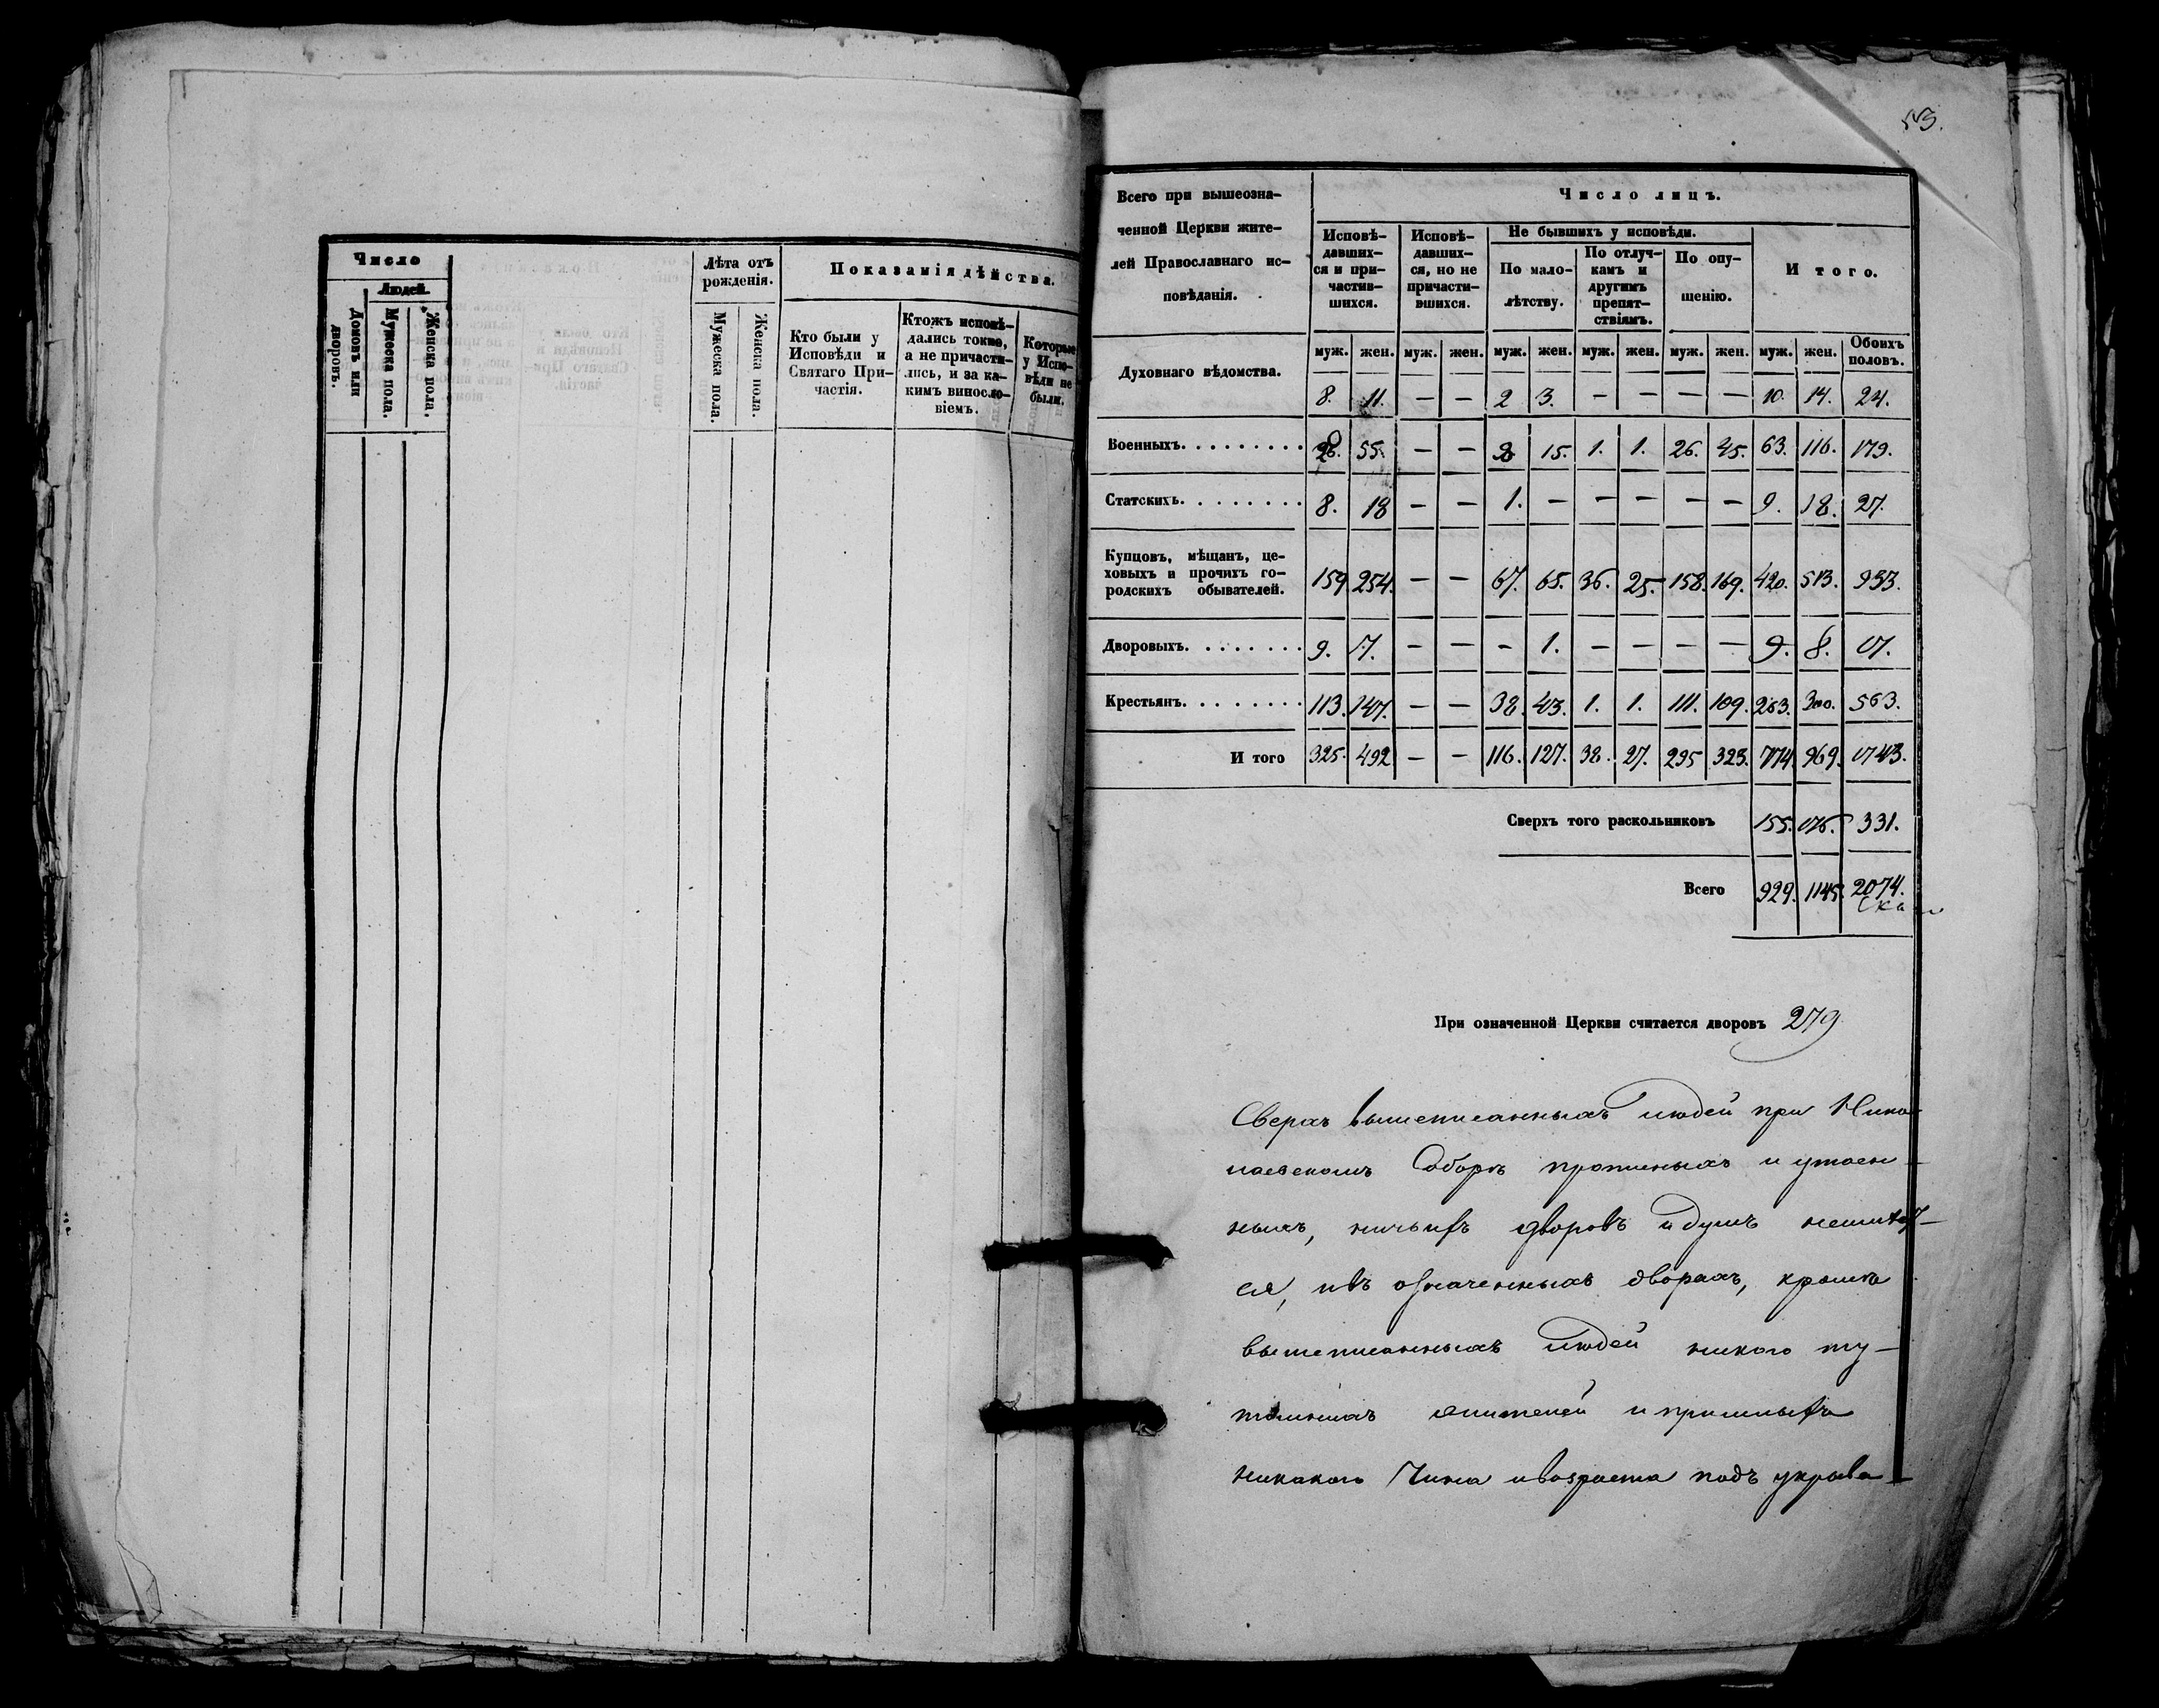 Число
Людей.
Домовъ или дворовъ.
Мужеска пола.
Женска пола.
Лѣта отъ рожденія.
Мужеска пола.
Женска пола.
Показанія дѣйства.
Кто были у
Исповѣди и
Святаго При-
частія.
Ктожъ исповѣ-
дались токмо,
а не причасти-
лись, и за ка-
кимъ виносло-
віемъ.
Которые
у Испо-
вѣди не
были.
53.
Всего при вышеозна-
ченной Церкви жите-
лей Православнаго ис-
повѣданія.
Число лицъ.
Исповѣ-
давших-
ся и при-
частив-
шихся.
Исповѣ-
давших-
ся, но не
причасти-
вшихся.
Не бывшихъ у исповѣди.
По мало-
лѣтству.
По отлуч-
камъ и
другимъ
препят-
ствіямъ.
По опу-
щенію.
И того.
муж. жен. муж. жен. муж. жен. муж. жен. муж. жен. муж. жен. Обоихъ половъ.
Духовнаго вѣдомства. 8. 11. — — 2 3. — — — — 10. 14. 24.
Военныхъ. . . . . . . . . 28. 55. — — 8 15. 1. 1. 26. 45. 63. 116. 179.
Статскихъ. . . . . . . . 8. 18 — — 1. — — — — — 9. 18. 27.
Купцовъ, мѣщанъ, це-
ховыхъ и прочихъ го-
родскихъ обывателей. 159. 254. — — 67. 65. 36. 25. 158. 169. 420. 513. 933.
Дворовыхъ. . . . . . . . 9. 7. — — — 1. — — — — 9. 8. 17.
Крестьянъ. . . . . . . . 113. 147. — — 38. 43. 1. 1. 111. 109. 263. 300. 563.
И того 325. 492 — — 116. 127. 38. 27. 295 323. 774. 969. 1743.
Сверхъ того раскольниковъ 155. 176. 331.
Всего 929. 1145. 2074.
При означенной Церкви считается дворовъ 279
Сверхъ вышеписанныхъ людей при Нико-
лаевскомъ Соборѣ прописныхъ и утаен-
ныхъ, ничьихъ дворовъ и душъ неимѣет-
ся, и въ означенныхъ дворахъ, кромѣ
вышеписанныхъ людей никого ту-
тошнихъ жителей и пришлыхъ
никакого Чина и возраста подъ укрыва-